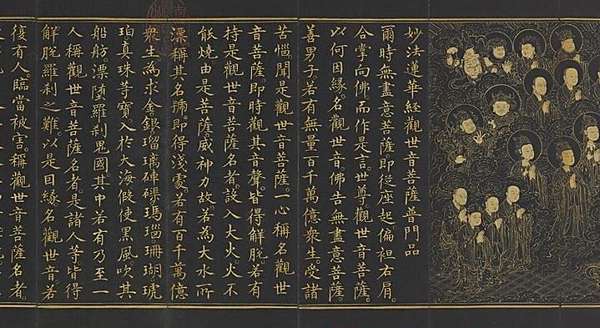 妙法蓮華經觀世音菩薩普門品
爾時無盡意菩薩即從座起偏袒右肩
合掌向佛而作是言世尊觀世音菩薩
以何因緣名觀世音佛告無盡意菩薩
善男子若有無量百千萬億衆生受諸
苦惱聞是觀世音菩薩一心稱名觀世
音菩薩即時觀其音聲皆得解脫若有
持是觀世音菩薩名者設入大火火不
能燒由是菩薩威神力故若為大水所
漂稱其名號即得淺處若有百千萬億
衆生為求金銀瑠璃硨磲瑪瑙珊瑚琥
珀真珠等寶入於大海假使黑風吹其
船舫漂墮羅刹鬼國其中若有乃至一
人稱觀世音菩薩名者是諸人等皆得
解脫羅刹之難以是因緣名觀世音若
復有人臨當被害稱觀世音菩薩名者